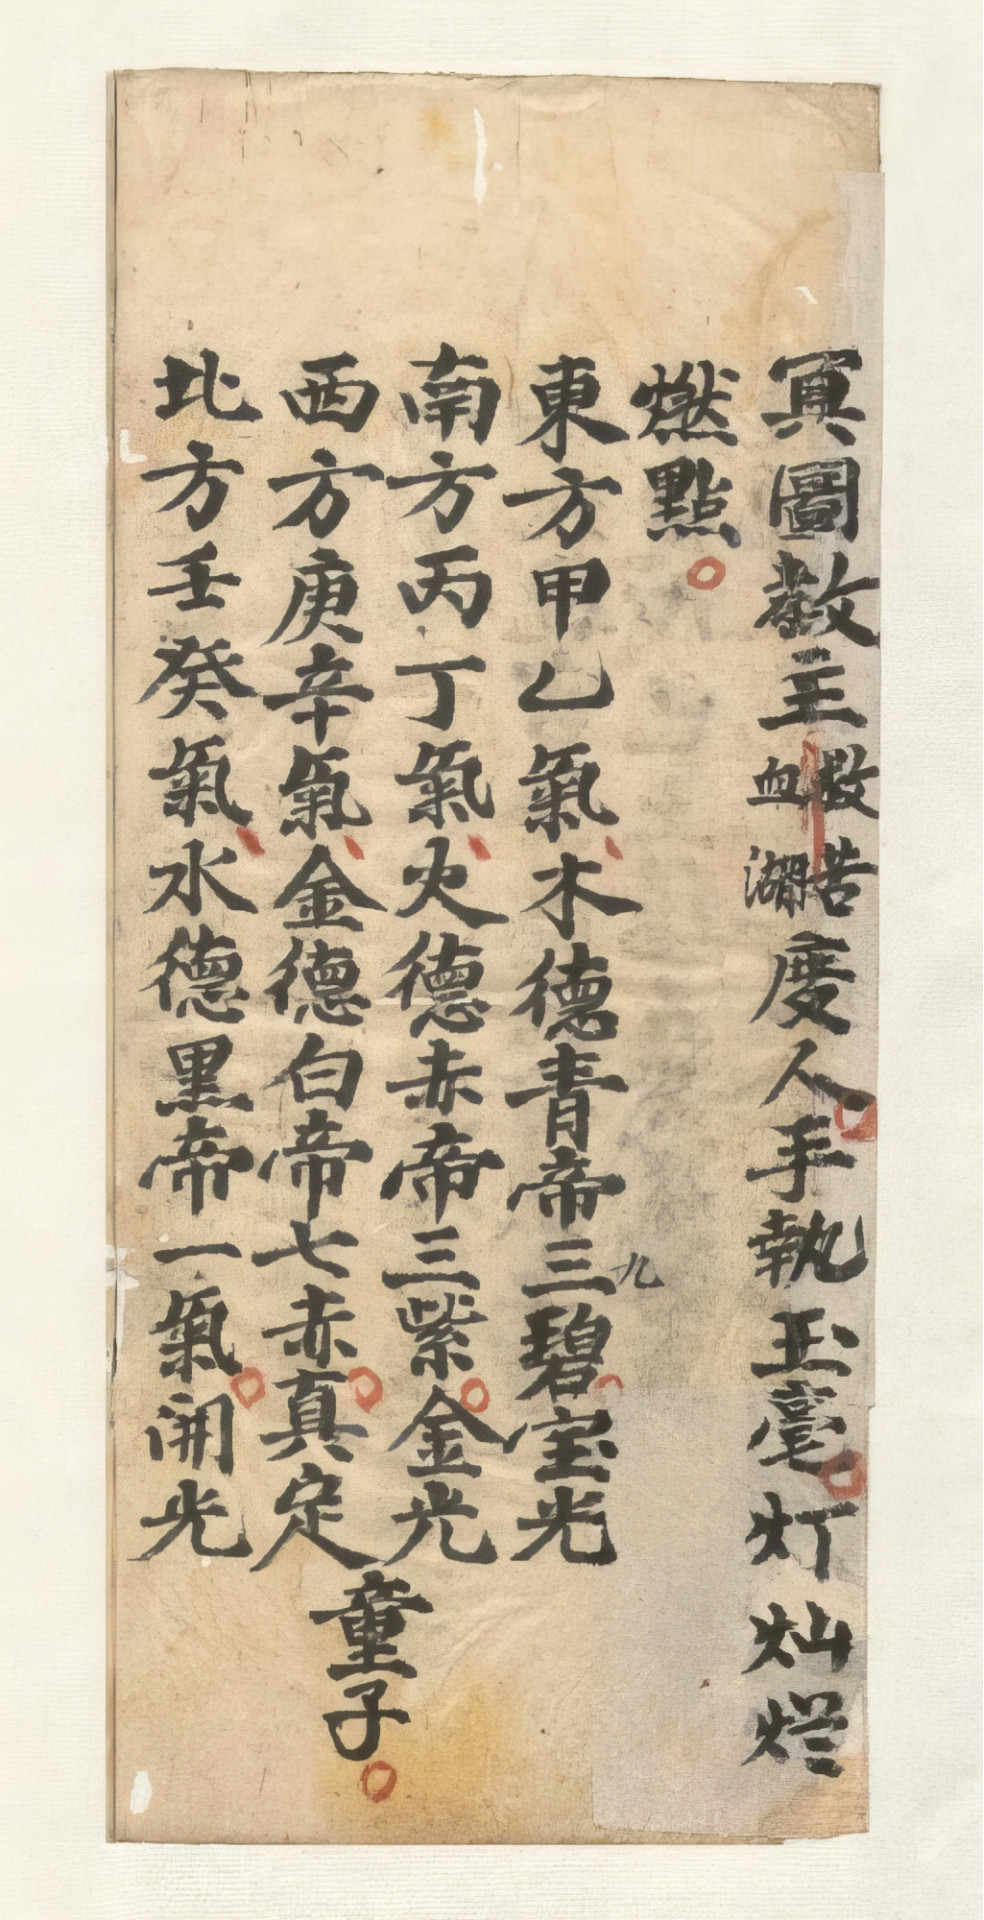 冥圖教主救苦血湖度人手執玉毫灯灿烂
燃點
東方甲乙氣木德青帝三九碧宝光
南方丙丁氣火德赤帝三紫金光
西方庚辛氣金德白帝七赤真定
北方壬癸氣水德黑帝一氣開光
童子